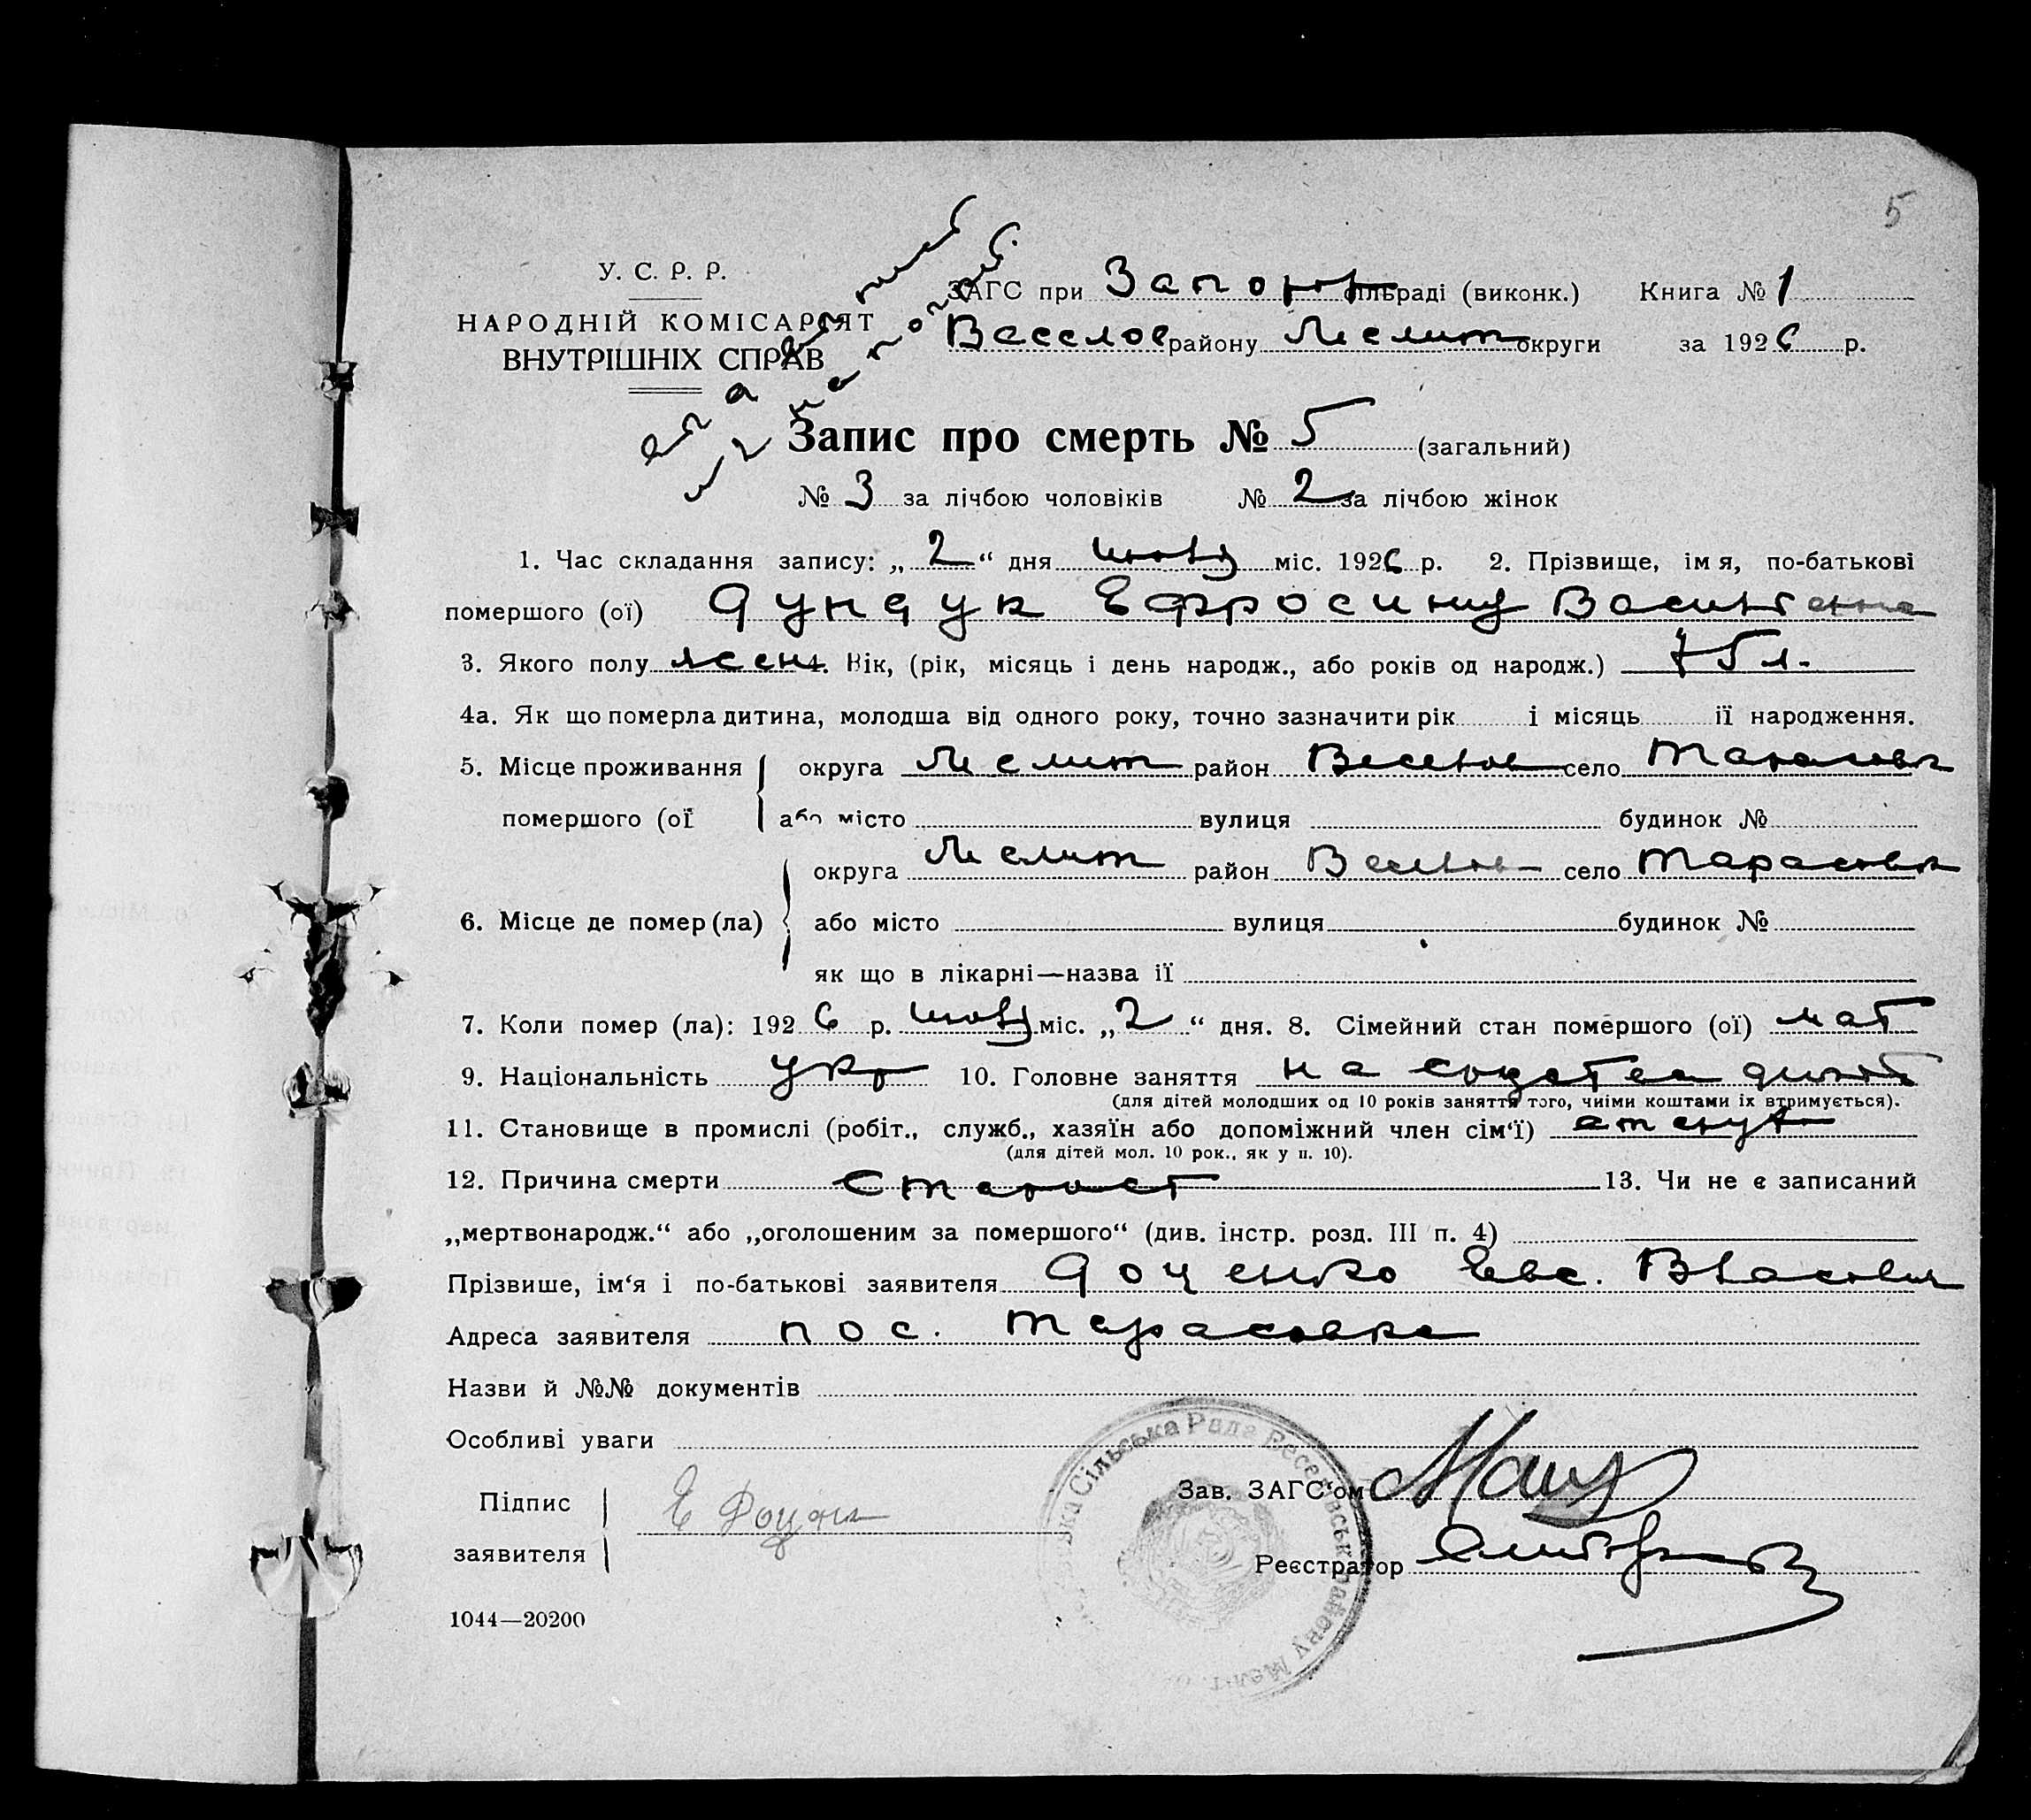 5
У. С. Р. Р.
НАРОДНІЙ КОМІСАРІЯТ
ВНУТРІШНІХ СПРАВ
ЗАГС при Запорж сільраді (виконк.) Книга № 1
Веселов району Мелит округи за 1926 р.
Запис про смерть № 5 (загальний)
№ 3 за лічбою чоловіків № 2 за лічбою жінок
1. Час складання запису: „2“ дня міс. 1926 р. 2. Прізвище, імя, по-батькові
помершого (ої) Дундук Ефросину
3. Якого полу жсен 4. Вік, (рік, місяць і день народж., або років од народж.) 75 л.
4а. Як що померла дитина, молодша від одного року, точно зазначити рік і місяць її народження.
5. Місце проживання округа Мелит район Веселов село Тарасовк
помершого (ої або місто вулиця будинок №
округа Мелит район Веселов село Тарасовк
6. Місце де помер (ла) або місто вулиця будинок №
як що в лікарні—назва її
7. Коли помер (ла): 1926 р. міс. „2“ дня. 8. Сімейний стан помершого (ої) мат
9. Національність укр 10. Головне заняття на
(для дітей молодших од 10 років заняття того, чиїми коштами їх втримується).
11. Становище в промислі (робіт., служб., хазяїн або допоміжний член сім‘ї)
(для дітей мол. 10 рок., як у п. 10).
12. Причина смерти Старост 13. Чи не є записаний
„мертвонародж.“ або „оголошеним за помершого“ (див. інстр. розд. III п. 4)
Прізвише, ім‘я і по-батькові заявителя Доценко Евс. Власович
Адреса заявителя пос. Тарасовка
Назви й №№ документів
Особливі уваги
Підпис
заявителя
Е Доценк
Сільська Рада Веселовськ району Меліт
Зав. ЗАГС‘ом
Реєстратор
1044—20200